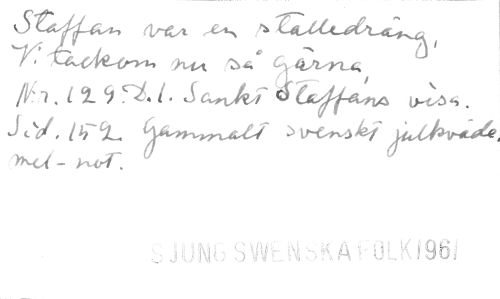 Staffan var en stalledräng,
Vi tackom nu så gärna,
Nr. 129. D.1. Sankt Staffans visa.
Sid. 152. Gammalt svenskt julkväde.
mel-not.
SJUNG SWENSKA FOLK/961